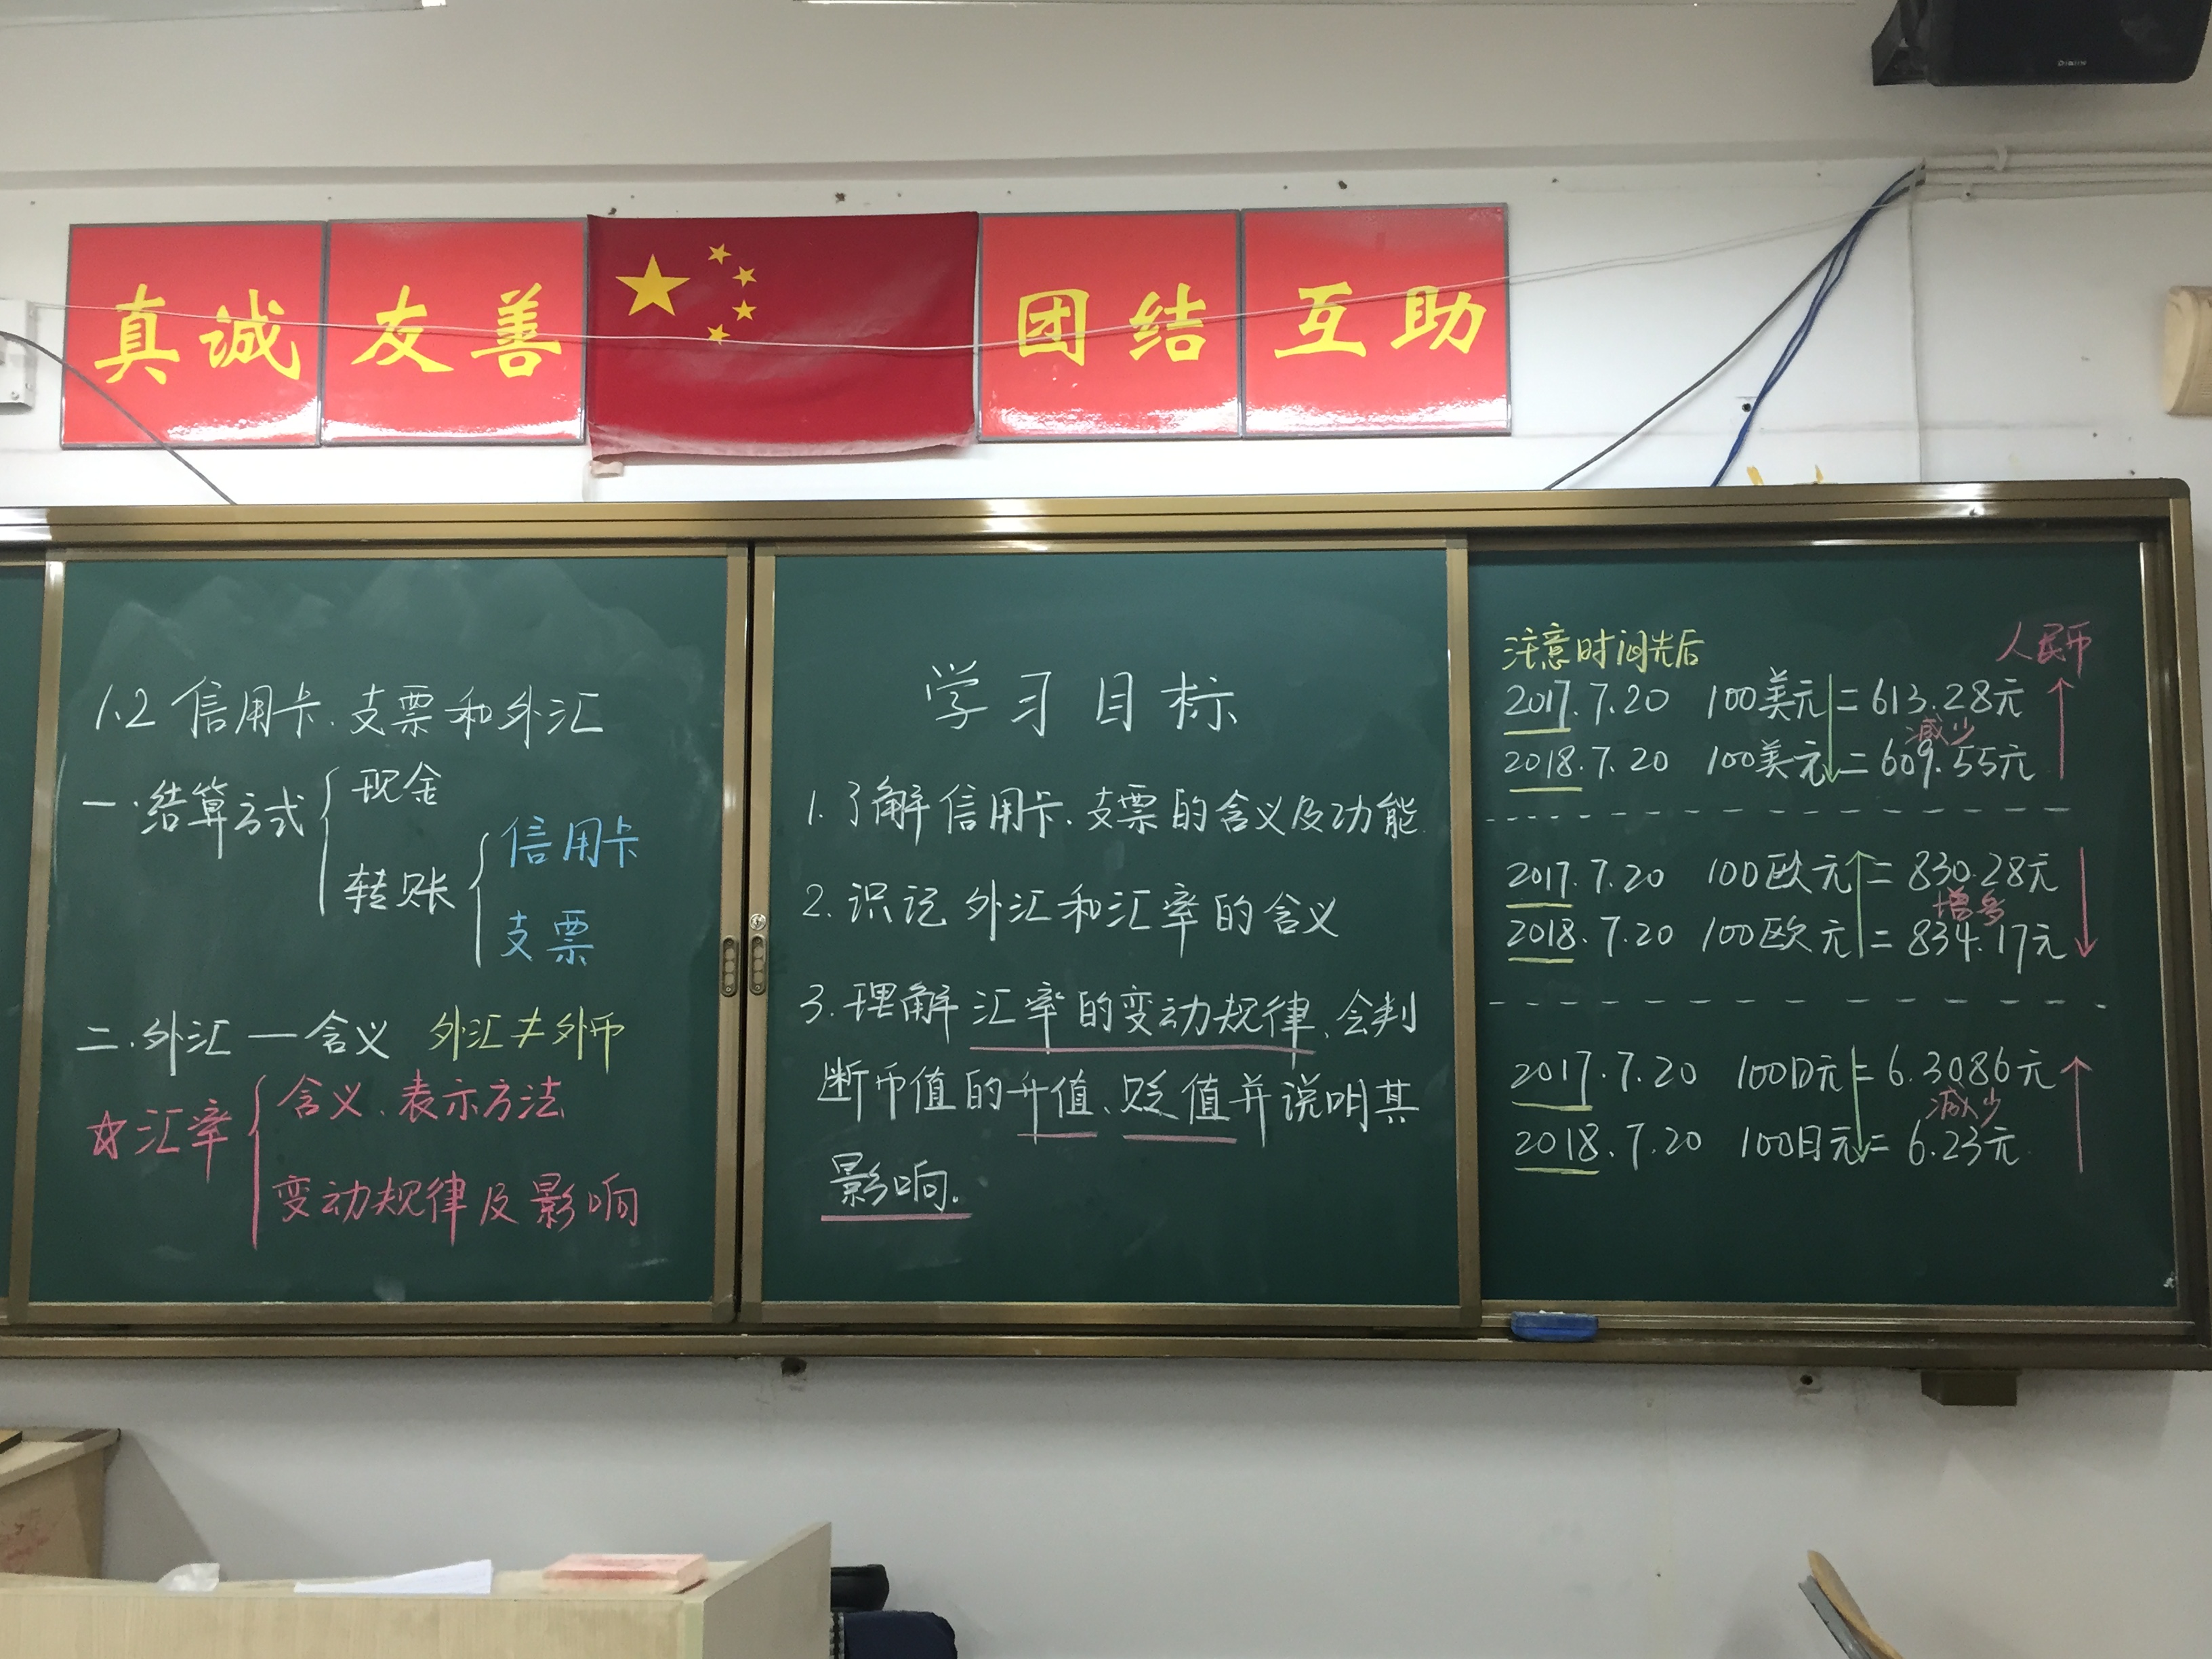 真诚 友善 团结 互助
1.2 信用卡、支票和外汇
一.结算方式
现金
转账
信用卡
支票
二.外汇—含义 外汇≠外币
☆汇率
含义、表示方法
变动规律及影响
学习目标
1.了解信用卡、支票的含义及功能
2.识记外汇和汇率的含义
3.理解汇率的变动规律、会判
断币值的升值、贬值并说明其
影响.
注意时间先后 人民币
2017.7.20 100美元↓=613.28元 ↑
减少
2018.7.20 100美元=609.55元
2017.7.20 100欧元↑=830.28元 ↓
增多
2018.7.20 100欧元=834.17元
2017.7.20 100日元↓=6.3086元 ↑
减少
2018.7.20 100日元=6.23元